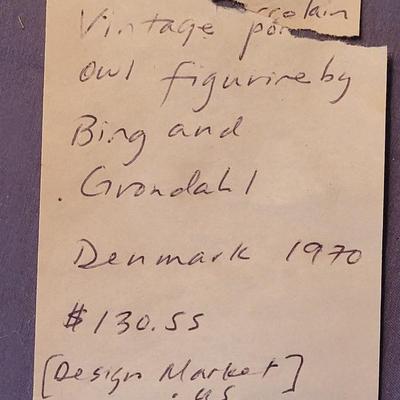 Vintage porcelain
owl figurine by
Bing and
. Grondahl
Denmark 1970
$130.55
[Design Market]
. us